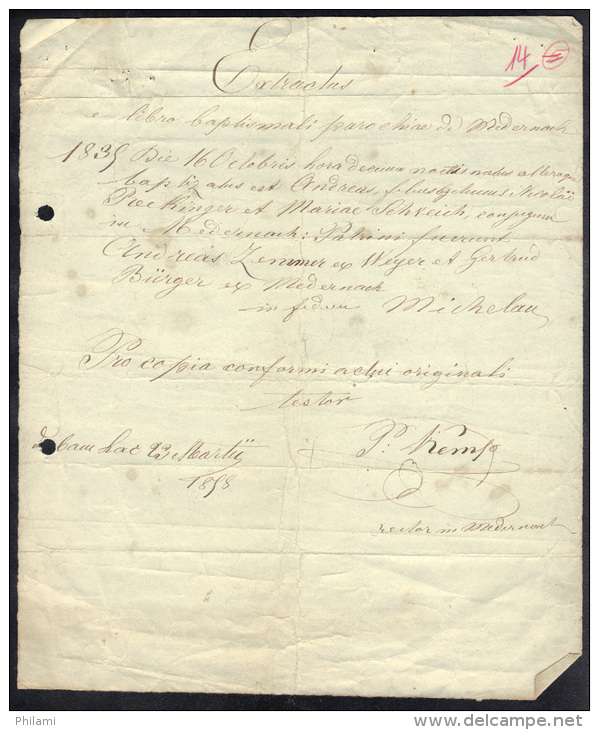 14 =
Extractus
e libro baptismali parochiae de Medernach
1835 Die 16 Octobris hora decima noctis natus altera
baptizatus est Andreas, filius legitimus Nicolai
Reckinger et Mariae Schleich, conjugum
in Medernach: Patrini fuerunt
Andreas Zemmer ex Weyer et Gertrud
Bürger ex Medernach
in fidem Michelau
Pro copia conformi actui originali
testor
hac 23 Martii
1858
P. Kemp
rector in Medernach
Philami
www.delcampe.net